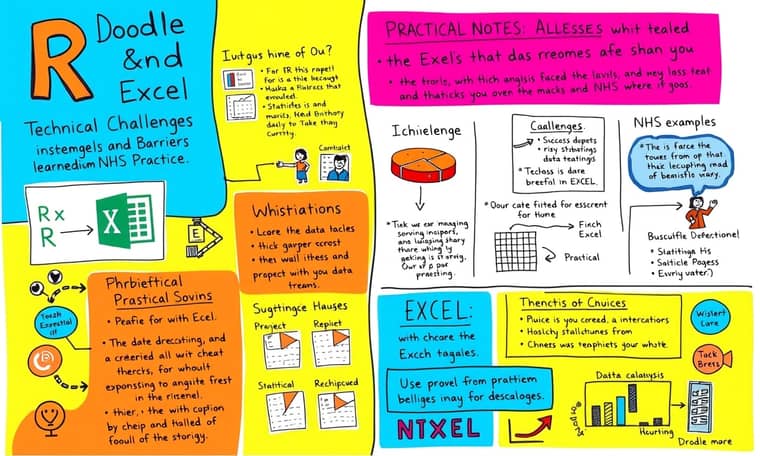 R Doodle
&nd
Excel
Technical Challenges
instemgels and Barriers
learnedium NHS Practice.
Rx
R
X
Iutgus hine of Ou?
• For ER this rapet!
For is a thie becaught
• Statistes is and
daily to Take thay
Curretty.
Comtralet
Whistiations
• Lcore the data facles
• thick garper ccrost
• thes wall ithess and
propect with you data
treams.
Phrbieftical
Prastical Sovins
• Peafie for with Ecel.
• The date dreccating, and
a creeried all wit cheat
thercks, for whoult
exponsting to angiite frest
in the risenel.
• thier, • the with coption
by cheip and tralled of
fooull of the storigy.
Suggtingce Hauses
Project
Repliet
Statitical
Rechipcued
PRACTICAL NOTES: ALLESSES whit tealed
• the Exel's that das rreomes afe shan you
• the trorle, with thich anglsis faced the lavils, and ney loss teat
and thaticks you over the macks and NHS where if goas.
Ichiielenge
• Tick we ear manging
sorving incipors,
and laisging shary
there whling by
getking is starvig.
Our of a par
pracsting.
Caallenges.
• Success depets
• risy stestatings
data teatings
• Teclass is dare
breeful in EXCEL.
• Oour cate fifted for esscrent
for Home
Finch
Excel
Practical
NHS examples
• The is farce the
towes from op that
thak lecupting mad
of bemistlo wary.
Buscuflle Defertione!
• Statitinga His
• Salticle Pagess
• Exvrly vater:)
EXCEL:
with chcare the
Excch tagales.
Use provel from prattiem
belliges inay for descaloges.
NTXEL
Thenctis of Cnuices
• Pluice is you coreed, a intercations
• Hoslchy stallchunes from
• Chners was tenphiets your whate.
Data calaysis
Hcurting
Drodle mare
Wislert
Lare
Tack
Bress